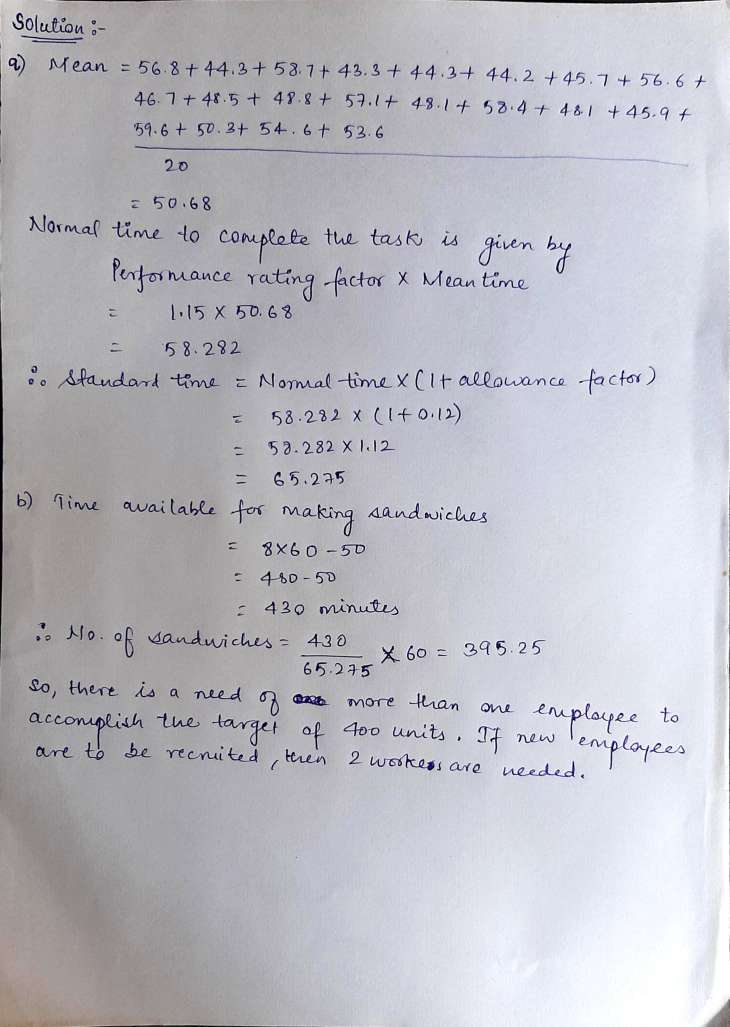 Solution :-
a) Mean = 56.8 + 44.3 + 58.7 + 43.3 + 44.3 + 44.2 + 45.7 + 56.6 +
46.7 + 48.5 + 48.8 + 57.1 + 48.1 + 58.4 + 48.1 + 45.9 +
59.6 + 50.3 + 54.6 + 53.6
20
= 50.68
Normal time to complete the task is given by
Performance rating factor X Mean time
= 1.15 X 50.68
= 58.282
∴ Standard time = Normal time X (1+ allowance factor)
= 58.282 X (1+0.12)
= 58.282 X 1.12
= 65.275
b) Time available for making sandwiches
= 8X60-50
= 480-50
= 430 minutes
∴ No. of sandwiches = 430 / 65.275 X 60 = 395.25
So, there is a need of more than one employee to
accomplish the target of 400 units. If new employees
are to be recruited, then 2 workers are needed.